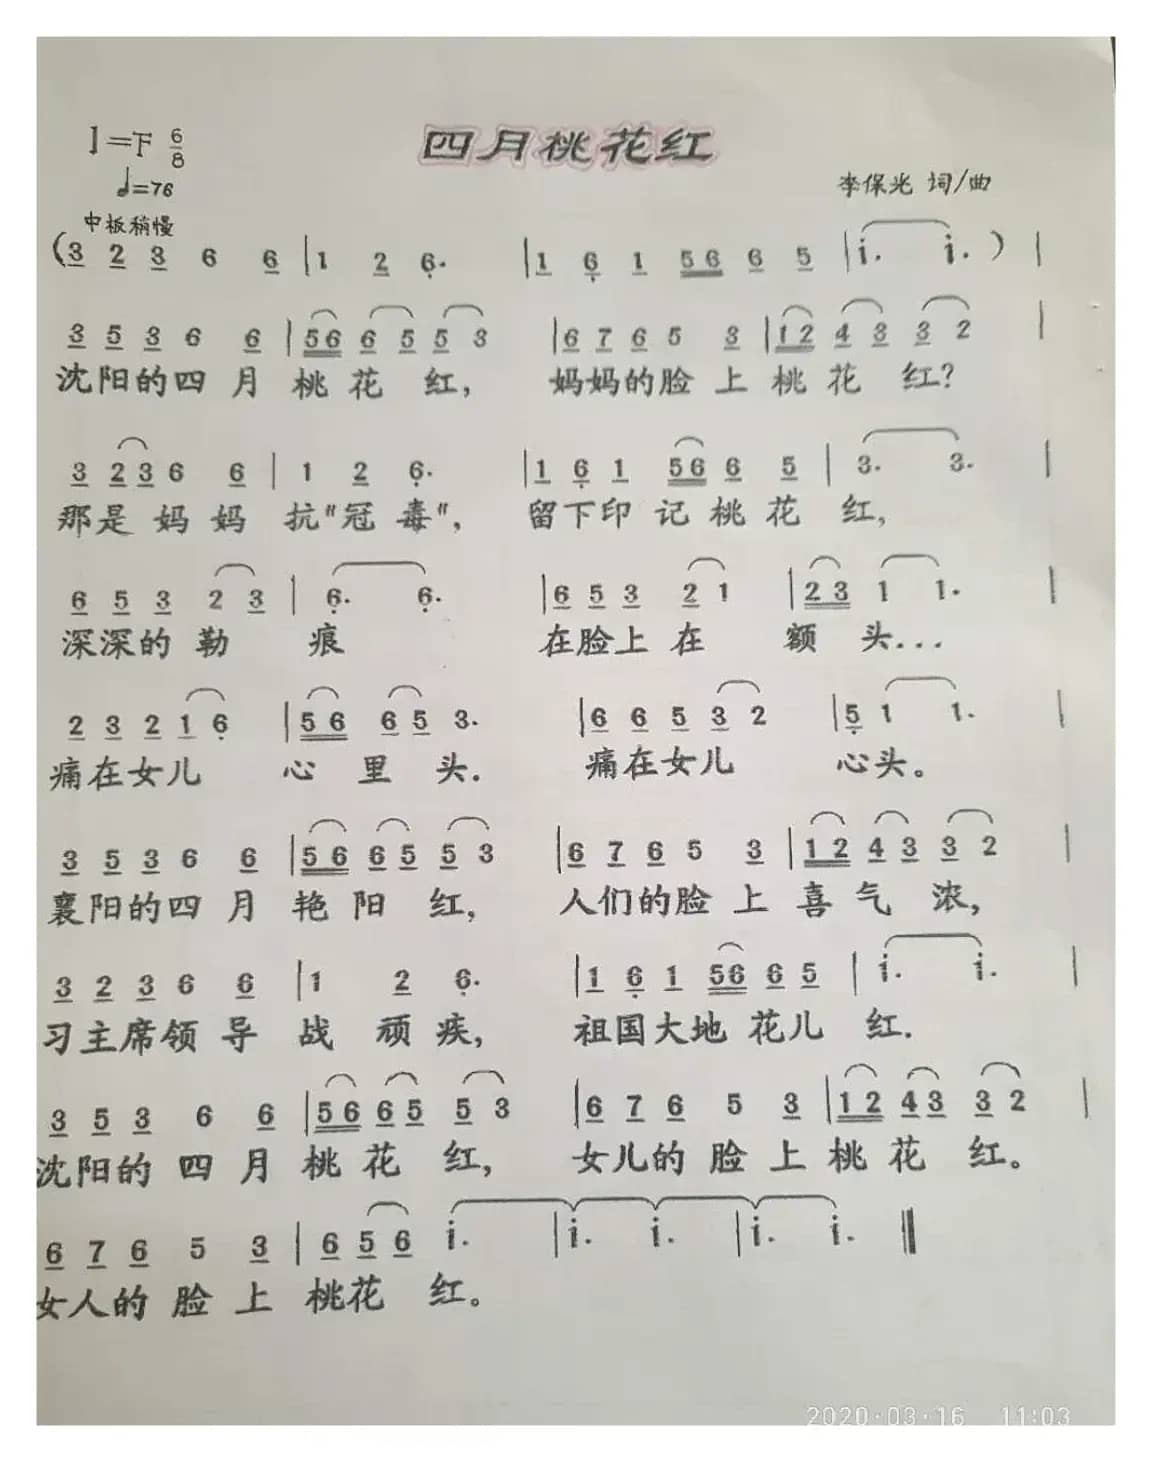 四月桃花红
1=F 6/8
♩=76
李保光 词/曲
中板稍慢
(3 2 3 6 6 | 1 2 6· | 1 6 1 56 6 5 | i· i·) |
3 5 3 6 6 | 56 6 5 5 3 | 6 7 6 5 3 | 12 4 3 3 2 |
沈阳的四月桃花红, 妈妈的脸上桃花红?
3 23 6 6 | 1 2 6· | 1 6 1 56 6 5 | 3· 3· |
那是妈妈抗"冠毒", 留下印记桃花红,
6 5 3 2 3 | 6· 6· | 6 5 3 2 1 | 23 1 1· |
深深的勒痕 在脸上在额头...
2 3 2 1 6 | 56 6 5 3· | 6 6 5 3 2 | 5 1 1· |
痛在女儿心里头. 痛在女儿心头。
3 5 3 6 6 | 56 6 5 5 3 | 6 7 6 5 3 | 12 4 3 3 2 |
襄阳的四月艳阳红, 人们的脸上喜气浓,
3 2 3 6 6 | 1 2 6· | 1 6 1 56 6 5 | i· i· |
习主席领导战顽疾, 祖国大地花儿红.
3 5 3 6 6 | 56 6 5 5 3 | 6 7 6 5 3 | 12 43 3 2 |
沈阳的四月桃花红, 女儿的脸上桃花红。
6 7 6 5 3 | 6 5 6 i· | i· i· | i· i· ‖
女人的脸上桃花红。
2020·03·16 11:03